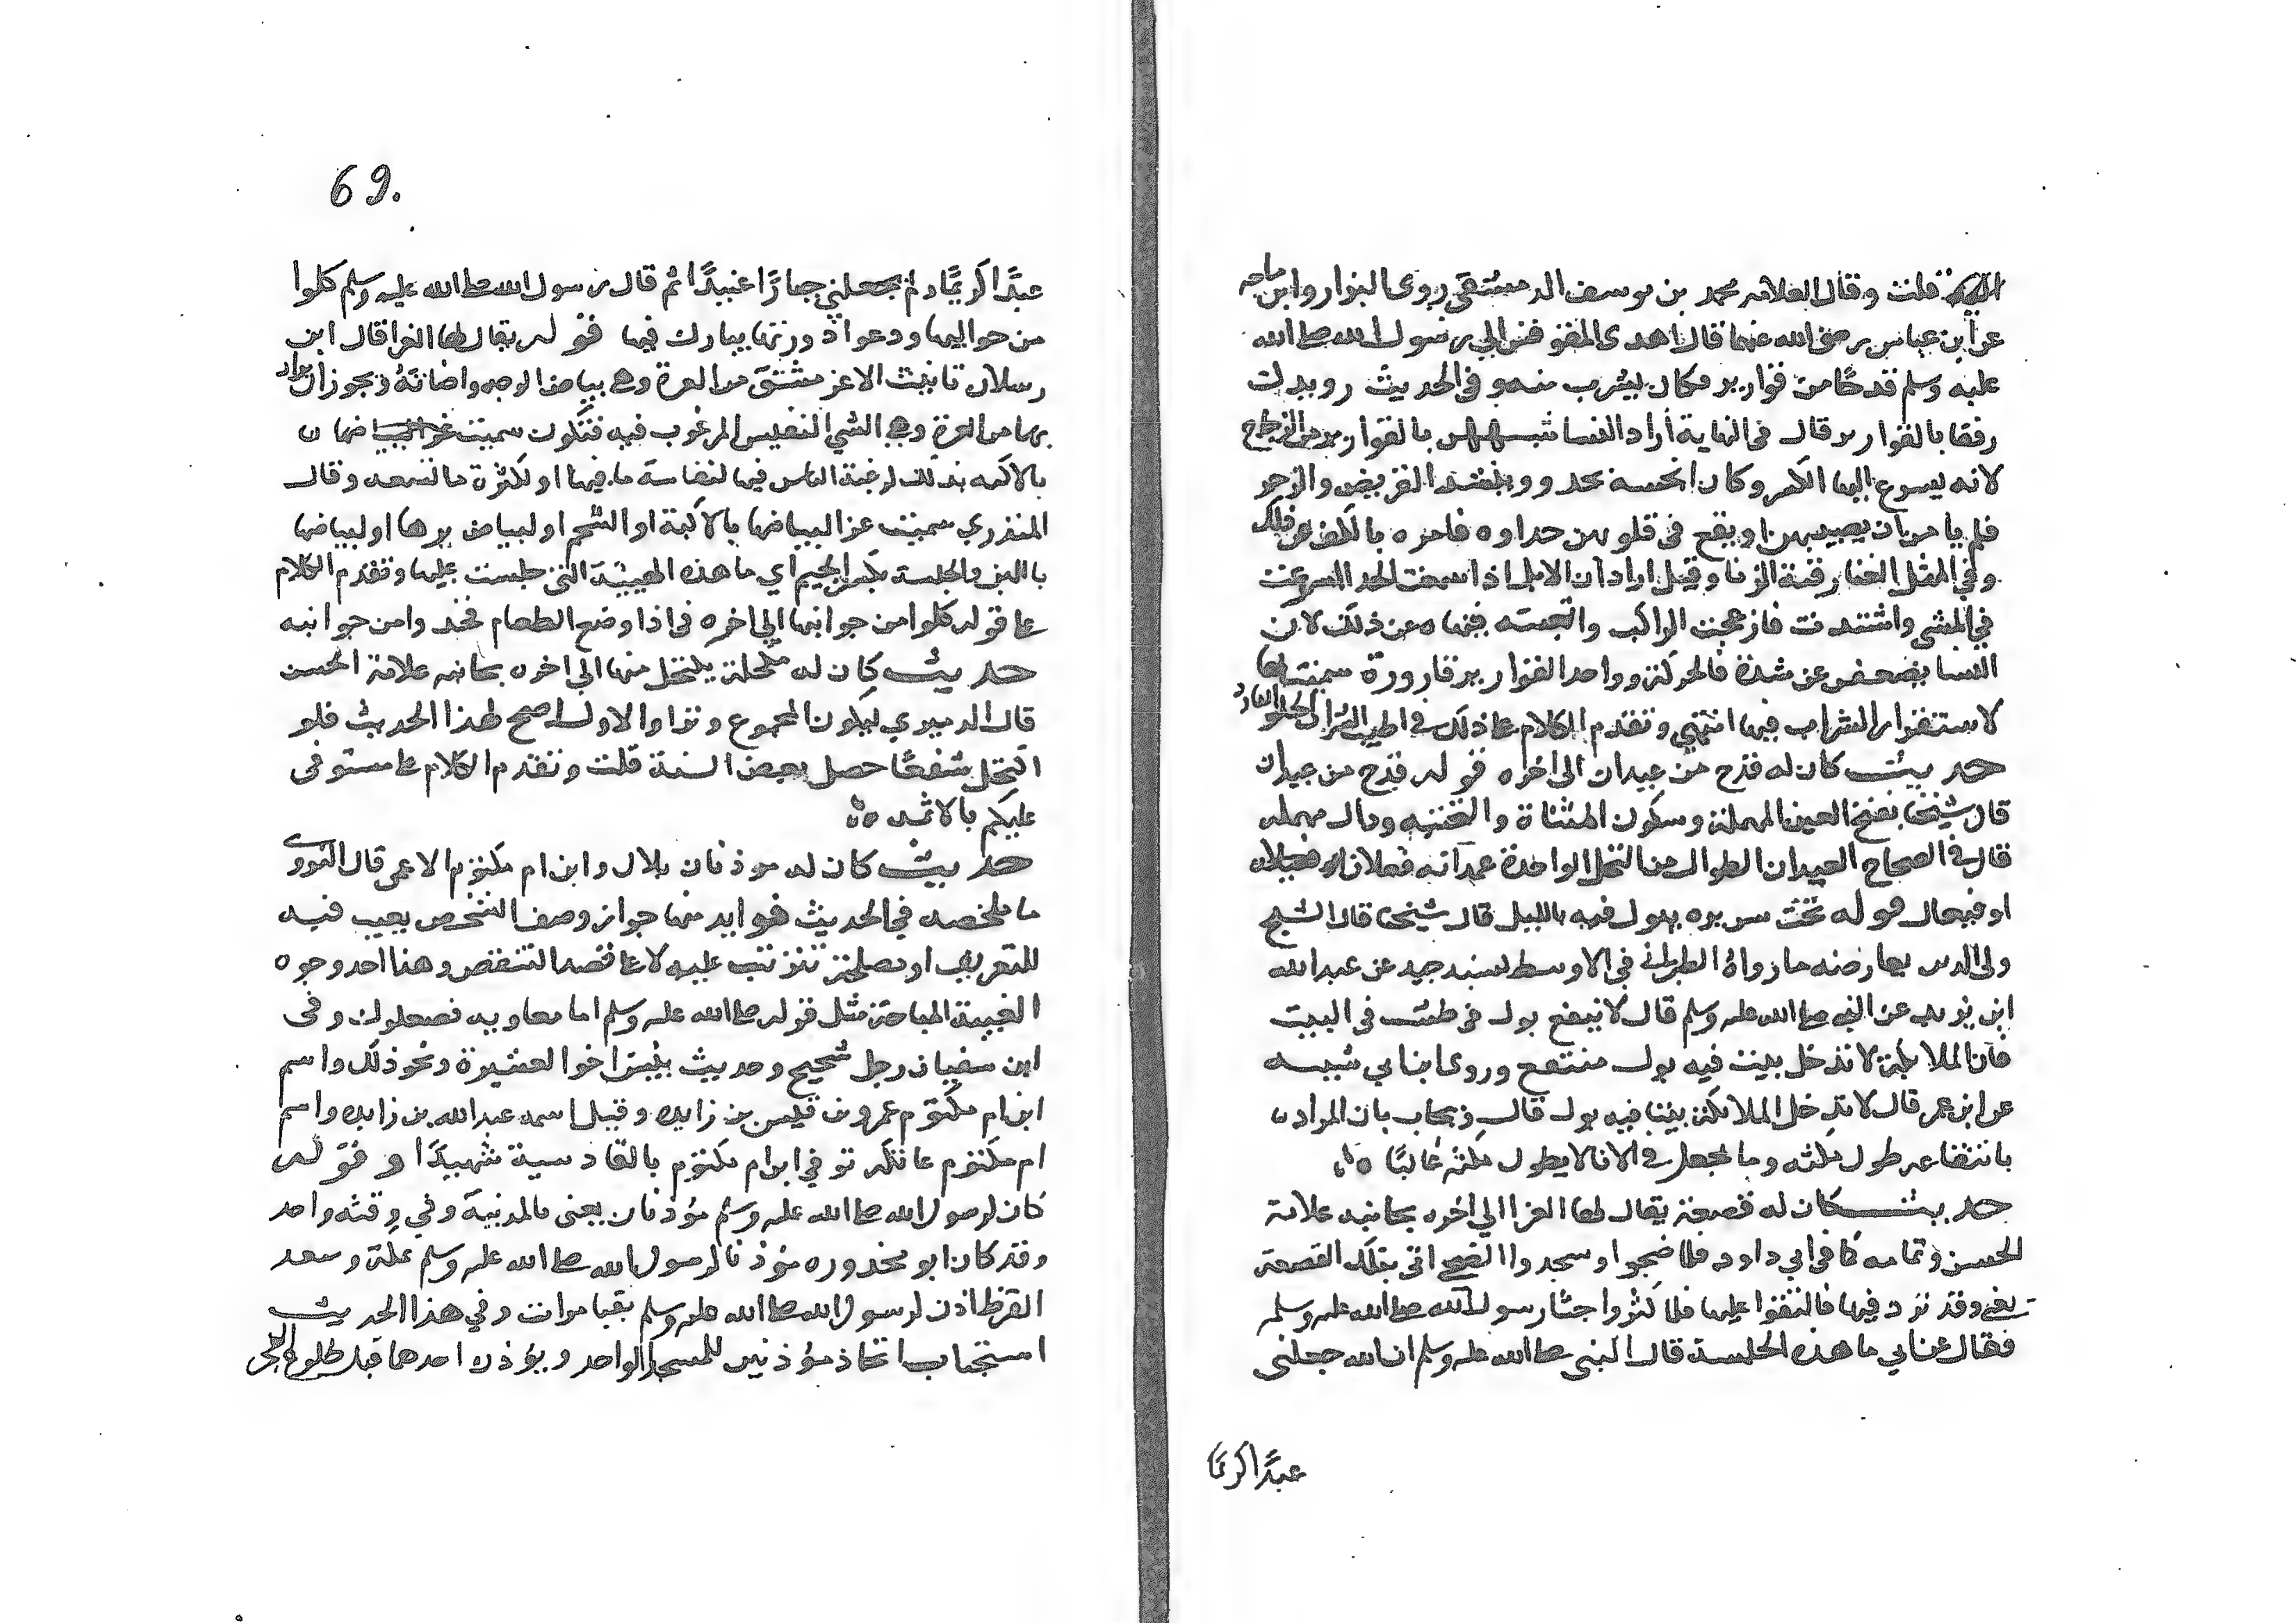 قلت وقال العلامه محمد بن يوسف الدمشقي روى البزار وابن ماجه
عن ابن عباس رضي الله عنهما قال اهدى المقوقس الي رسول الله صلى الله
عليه وسلم قدحًا من قوارير فكان يشرب منه وفي الحديث رويدك
رفقا بالقوارير قال في النهاية أراد النسا شبههن بالقوارير من الزجاج
لانه يسرع اليها الكسر وكان انجشه يحدو وينشد القريض والرجز
فلم يامن ان يصيبهن او يقع في قلوبهن حداوه فامره بالكف عن ذلك
وفي المثل الغنا رقية الزنا وقيل اراد ان الابل اذا سمعت الحدا اسرعت
في المشي واشتدت فازعجت الراكب واتعبته فنهاه عن ذلك لان
النسا يضعفن عن شدة الحركة وواحد القوارير قارورة سميت بها
لاستقرار الشراب فيها انتهي وتقدم الكلام على ذلك في اطيب الشراب الحلو البارد
حديث كان له قدح من عيدان الى اخره قوله قدح من عيدان
قال شيخنا بفتح العين المهملة وسكون المثناة والتحتيه ودال مهمله
قال في الصحاح العيدان الطوال من النخل الواحدة عيدانه فعلان
او فيعال قوله تحت سريره يبول فيه بالليل قال شيخنا قال الشيخ
ولي الدين يعارضه ما رواهُ الطبراني في الاوسط بسند جيد عن عبد الله
ابن يزيد عن النبي صلى الله عليه وسلم قال لا ينقع بول في طست في البيت
فان الملايكة لا تدخل بيت فيه بول منتقع وروى ابن ابي شيبه
عن ابن عمر قال لا تدخل الملايكة بيتا فيه بول قال ويجاب بان المراد
بانتقاعه طول مكثه وما يجعل في الانا لا يطول مكثه غالبًا
حديث كان له قصعة يقال لها الغرا الي اخره بجانبه علامة
الحسن وتمامه كما في ابي داود فلما ضحوا وسجدوا الضحى اتي بتلك القصعة
يعني وقد ثرد فيها فالتفوا عليها فلما كثروا جثا رسول الله صلى الله عليه وسلم
فقال اعرابي ما هذه الجلسة قال النبي صلى الله عليه وسلم ان الله جعلني
عبدًا كريمًا
69.
عبدًا كريمًا ولم يجعلني جبارًا عنيدًا ثم قال رسول الله صلى الله عليه وسلم كلوا
من حواليها ودعوا ذروتها يبارك فيها قوله يقال لها الغرا قال ابن
رسلان تانيث الاغر مشتق من الغرة وهي بياض الوجه واضاته ويجوز ان يراد
بها من الغرة وهي الشي النفيس المرغوب فيه فتكون سميت
بذلك لرغبة الناس فيها لنفاسة ما فيها او لكثرة ما تسعه وقال
المنذري سميت غرا لبياضها بالالية او الشحم او لبياض برها او لبياضها
باللبن والجلسة بكسر الجيم اي ما هذه الهيية التي جلست عليها وتقدم الكلام
على قوله كلوا من جوانبها الي اخره في اذا وضع الطعام فخذوا من جوانبه
حديث كان له مكحلة يكتحل منها الي اخره بجانبه علامة الحسن
قال الدميري ليكون المجموع وترا والاول اصح لهذا الحديث فلو
اكتحل شفعًا حصل بعض السنة قلت وتقدم الكلام على مستوفى
عليكم بالاثمد
حديث كان له موذنان بلال وابن ام مكتوم الاعمى قال النووي
ما ملخصه في الحديث فوايد منها جواز وصف الشخص بعيب فيه
للتعريف او مصلحة تترتب عليه لا على قصد التنقص وهذا احد وجوه
الغيبة المباحة مثل قوله صلى الله عليه وسلم اما معاويه فصعلوك وفي
ابن سفيان رجل شحيح وحديث بيس اخو العشيرة ونحو ذلك واسم
ابن ام مكتوم عمرو بن قيس بن زايده وقيل اسمه عبد الله بن زايده واسم
ام مكتوم عاتكه توفي ابن ام مكتوم بالقادسية شهيدًا وقوله
كان لرسول الله صلى الله عليه وسلم مؤذنان يعني بالمدينة وفي وقته واحد
وقد كان ابو محذوره مؤذنا لرسول الله صلى الله عليه وسلم بمكة وسعد
القرظ اذن لرسول الله صلى الله عليه وسلم بقبا مرات وفي هذا الحديث
استحباب اتخاذ مؤذنين للمسجد الواحد ويؤذن احدهما قبل طلوع الفجر